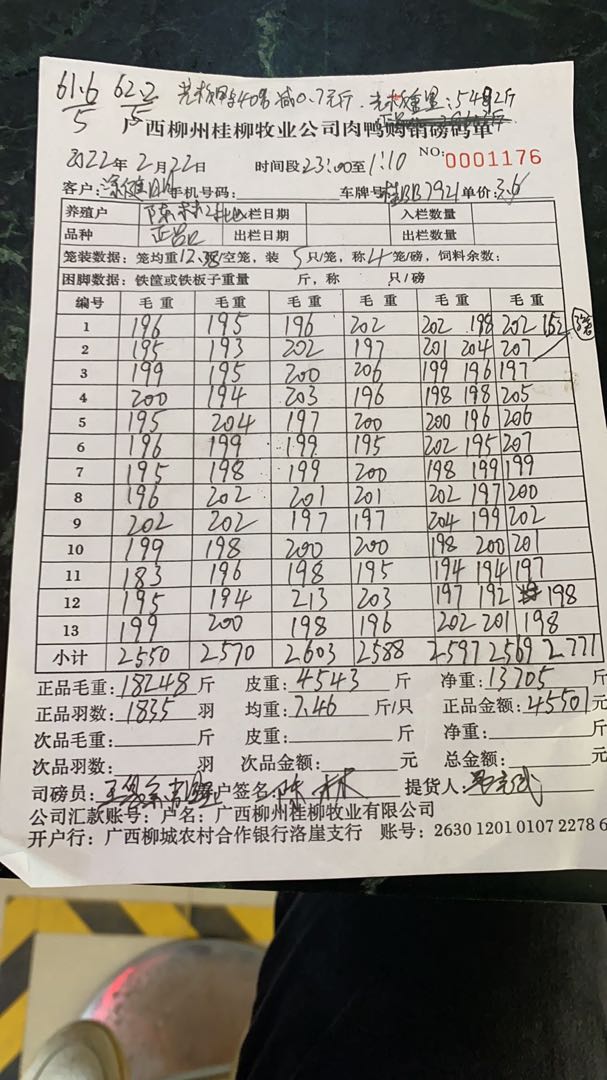 61.6 62.2
5 5
减0.7元/斤
广西柳州桂柳牧业公司肉鸭购销磅码单
2022年2月22日 时间段23:00至1:10 NO:0001176
客户: 手机号码: 车牌号:桂BB7921 单价:3.6
养殖户 陈林 入栏日期 入栏数量
品种 正品 出栏日期 出栏数量
笼装数据:笼均重12.38/空笼,装5只/笼,称4笼/磅,饲料余数:
困脚数据:铁筐或铁板子重量 斤,称 只/磅
编号 毛重 毛重 毛重 毛重 毛重 毛重
1 196 195 196 202 202 198 202 152
2 195 193 202 197 201 204 207
3 199 195 200 206 199 196 197
4 200 194 203 196 198 198 205
5 195 204 197 200 200 196 206
6 196 199 199 195 202 195 207
7 195 198 199 200 198 199 199
8 196 202 201 201 202 197 200
9 202 202 197 197 204 199 202
10 199 198 200 200 198 200 201
11 183 196 198 195 194 194 197
12 195 194 213 203 197 192 198
13 199 200 198 196 202 201 198
小计 2550 2570 2603 2588 2597 2569 2771
正品毛重:18248斤 皮重:4543斤 净重:13705斤
正品羽数:1835羽 均重:7.46斤/只 正品金额:45501元
次品毛重: 斤 皮重: 斤 净重: 斤
次品羽数: 羽 次品金额: 元 总金额: 元
司磅员: 户签名:陈林 提货人:
公司汇款账号:户名:广西柳州桂柳牧业有限公司
开户行:广西柳城农村合作银行洛崖支行 账号:2630 1201 0107 2278 6